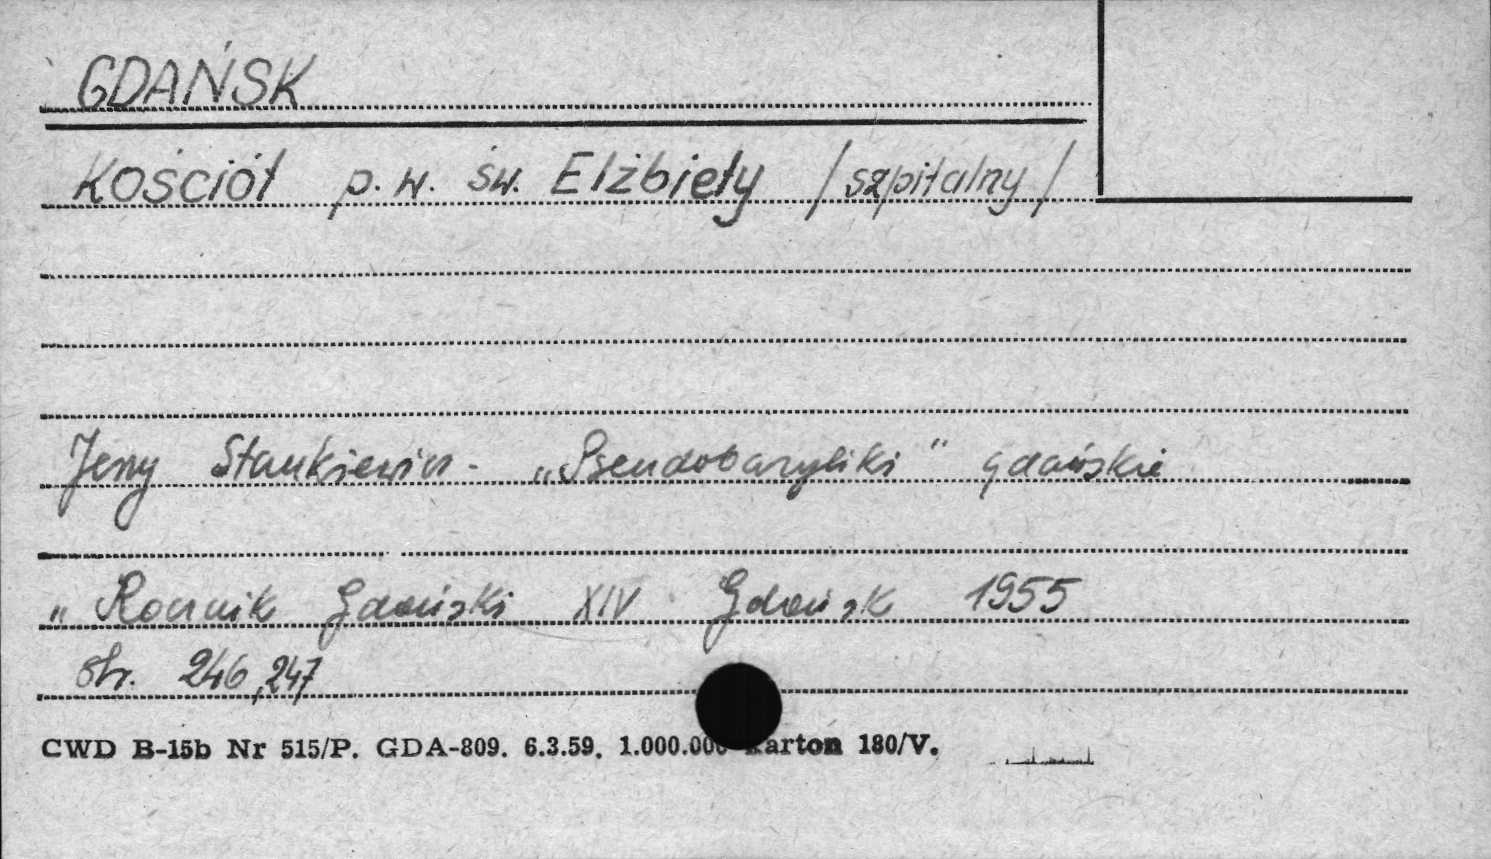 GDAŃSK
Kościół p.w. św. Elżbiety /szpitalny/
Jerzy Stankiewicz - „Pseudobazyliki" gdańskie
„Rocznik Gdański XIV Gdańsk 1955
str. 246,247
CWD B-15b Nr 515/P. GDA-809. 6.3.59. 1.000.000 Karton 180/V.